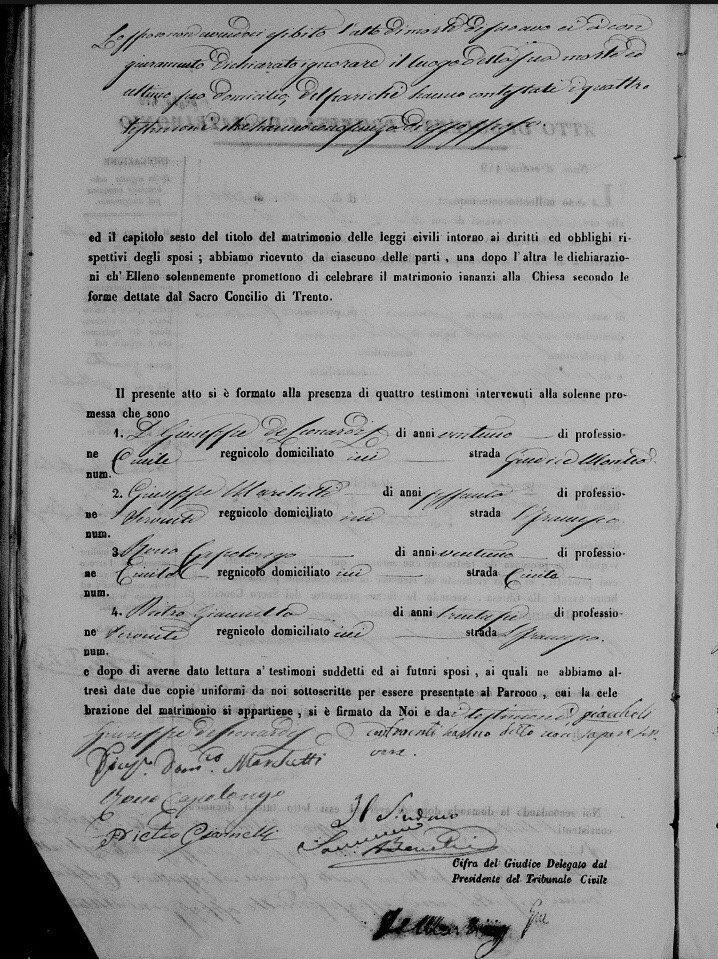 Lo sposo non avendoci esibito l'atto di morte di suo avo ci à con
giuramento dichiarato ignorare il luogo della sua morte ed
ultimo suo domicilio, del pari che hanno contestato i quattro
testimoni che hanno conoscenza di esso sposo.
ed il capitolo sesto del titolo del matrimonio delle leggi civili intorno ai diritti ed obblighi ri-
spettivi degli sposi ; abbiamo ricevuto da ciascuno delle parti , una dopo l'altra le dichiarazio-
ni ch' Elleno solennemente promettono di celebrare il matrimonio innanzi alla Chiesa secondo le
forme dettate dal Sacro Concilio di Trento.
Il presente atto si è formato alla presenza di quattro testimoni intervenuti alla solenne pro-
messa che sono
1. D. Giuseppe de Leonardis di anni ventuno di professio-
ne Civile regnicolo domiciliato ivi strada Giudice
num.
2. Giuseppe Marchetti di anni sessanta di professio-
ne Servente regnicolo domiciliato ivi strada S. Francesco
num.
3. Rocco Capolongo di anni ventuno di professio-
ne Civile regnicolo domiciliato ivi strada Civile
num.
4. Pietro Giannetta di anni trentasei di professio-
ne Servente regnicolo domiciliato ivi strada S. Francesco
num.
e dopo di averne dato lettura a' testimoni suddetti ed ai futuri sposi , ai quali ne abbiamo al-
tresì date due copie uniformi da noi sottoscritte per essere presentate al Parroco , cui la cele
brazione del matrimonio si appartiene , si è firmato da Noi e da testimoni giacché li
Giuseppe de Leonardis contraenti hanno detto non sapere scri
vere.
Marchetti
Rocco Capolongo
Pietro Giannetti
Il Sindaco
Cifra del Giudice Delegato dal
Presidente del Tribunale Civile